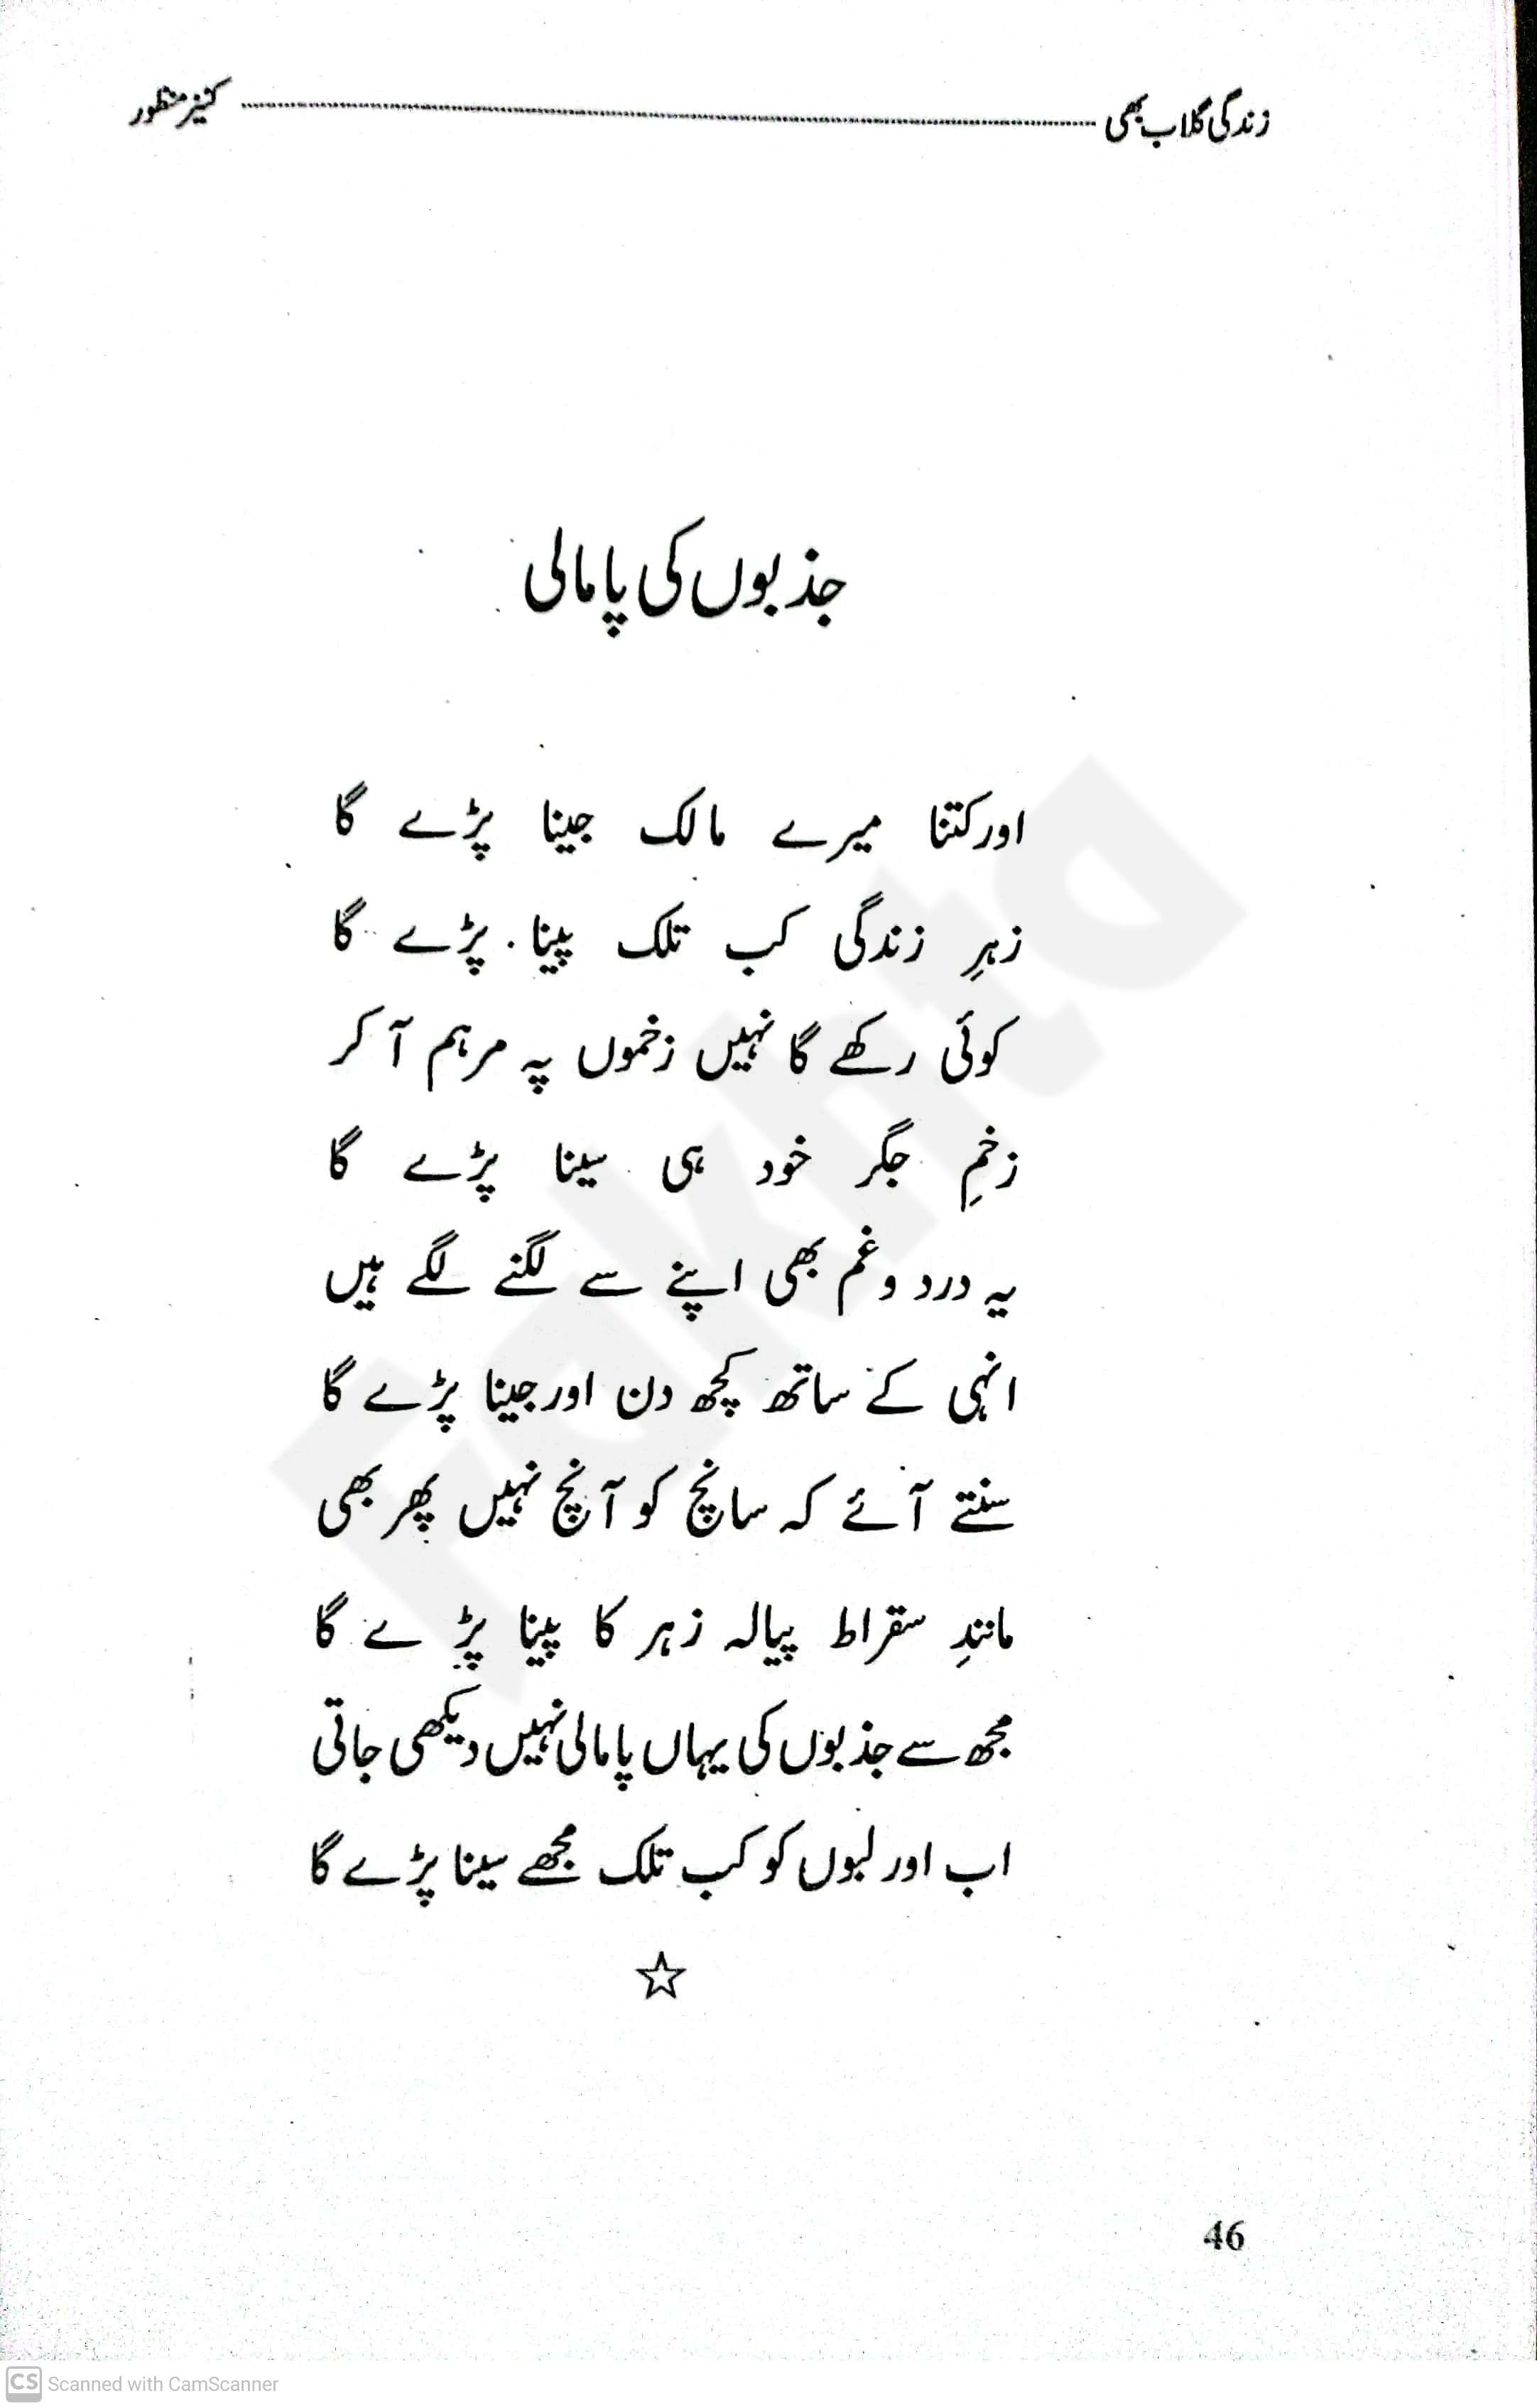 زندگی گلاب بھی ---------- کنیز منظور
جذبوں کی پامالی
اور کتنا میرے مالک جینا پڑے گا
زہرِ زندگی کب تلک پینا پڑے گا
کوئی رکھے گا نہیں زخموں پہ مرہم آ کر
زخمِ جگر خود ہی سینا پڑے گا
یہ درد و غم بھی اپنے سے لگنے لگے ہیں
انہی کے ساتھ کچھ دن اور جینا پڑے گا
سنتے آئے کہ سانچ کو آنچ نہیں پھر بھی
مانندِ سقراط پیالہ زہر کا پینا پڑے گا
مجھ سے جذبوں کی یہاں پامالی نہیں دیکھی جاتی
اب اور لبوں کو کب تلک مجھے سینا پڑے گا
☆
46
Fakhta
CS Scanned with CamScanner